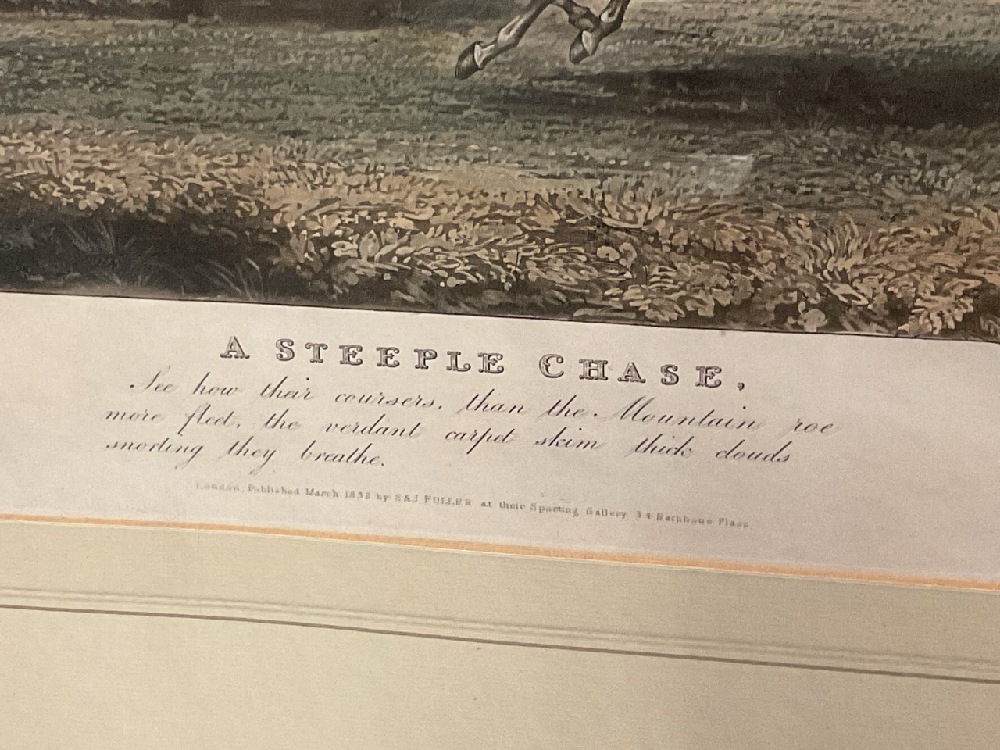 A STEEPLE CHASE.
See how their coursers, than the Mountain roe
more fleet, the verdant carpet skim thick clouds
snorting they breathe.
London, Published March by S & J FULLER at their Sporting Gallery 34 Rathbone Place